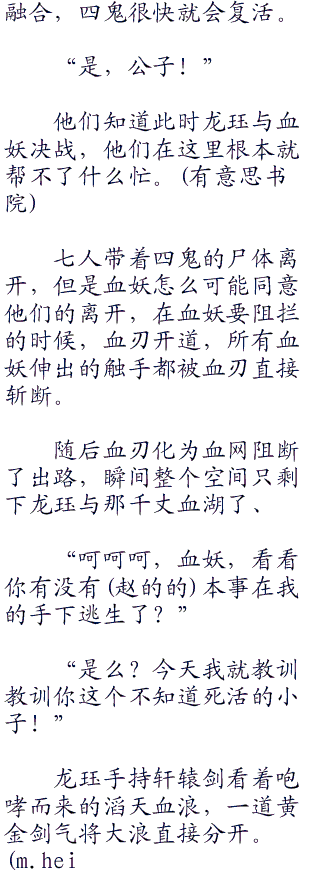 融合，四鬼很快就会复活。
“是，公子！”
他们知道此时龙珏与血
妖决战，他们在这里根本就
帮不了什么忙。(有意思书
院)
七人带着四鬼的尸体离
开，但是血妖怎么可能同意
他们的离开，在血妖要阻拦
的时候，血刃开道，所有血
妖伸出的触手都被血刃直接
斩断。
随后血刃化为血网阻断
了出路，瞬间整个空间只剩
下龙珏与那千丈血湖了、
“呵呵呵，血妖，看看
你有没有(赵的的)本事在我
的手下逃生了？”
“是么？今天我就教训
教训你这个不知道死活的小
子！”
龙珏手持轩辕剑看着咆
哮而来的滔天血浪，一道黄
金剑气将大浪直接分开。
(m.hei